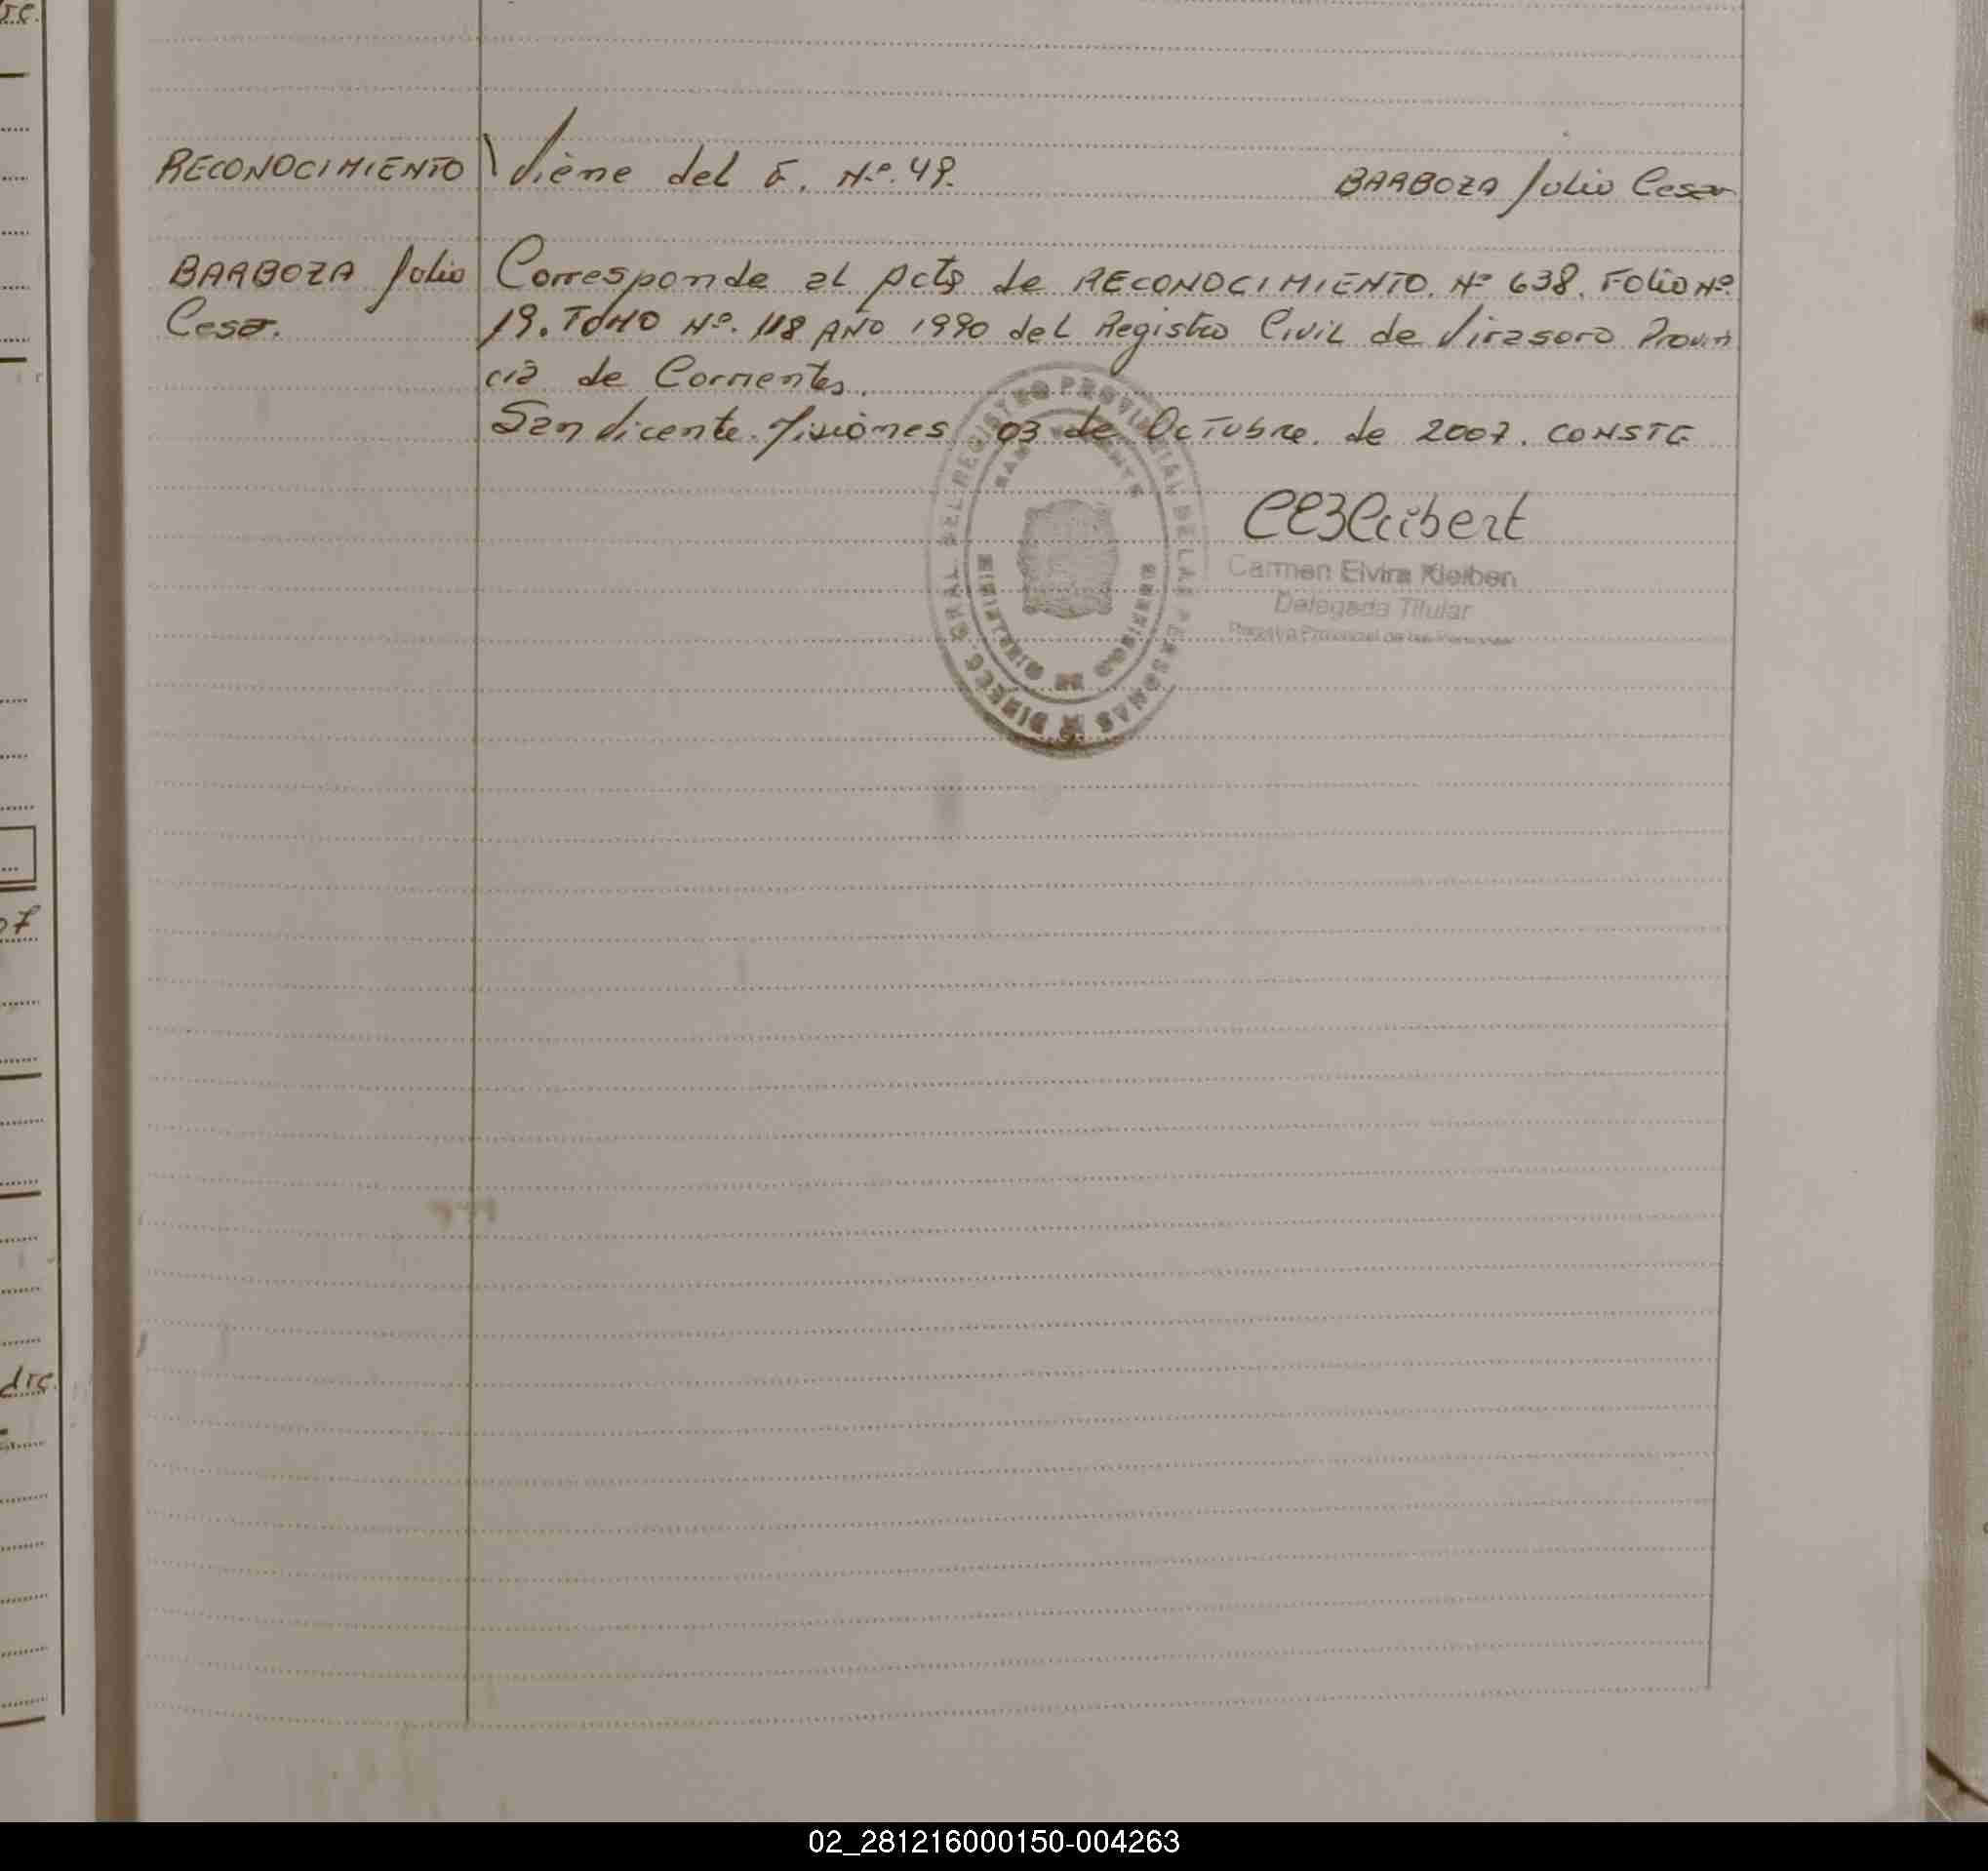 RECONOCIMIENTO Viene del F. Nº. 49. BARBOZA Julio Cesar
BARBOZA Julio Cesar.
Corresponde al Acta de RECONOCIMIENTO. Nº 638. FOLIO Nº.
19. TOMO Nº. 118 AÑO 1990 del Registro Civil de Virasoro Provin
cia de Corrientes.
San Vicente. Misiones. 03 de Octubre. de 2007. CONSTE
Carmen Elvira Kleiben
Delegada Titular
Registro Provincial de las Personas
DIRECC. GRAL. DEL REGISTRO PROVINCIAL DE LAS PERSONAS
SAN VICENTE
MINISTERIO DE GOBIERNO
07
02_281216000150-004263